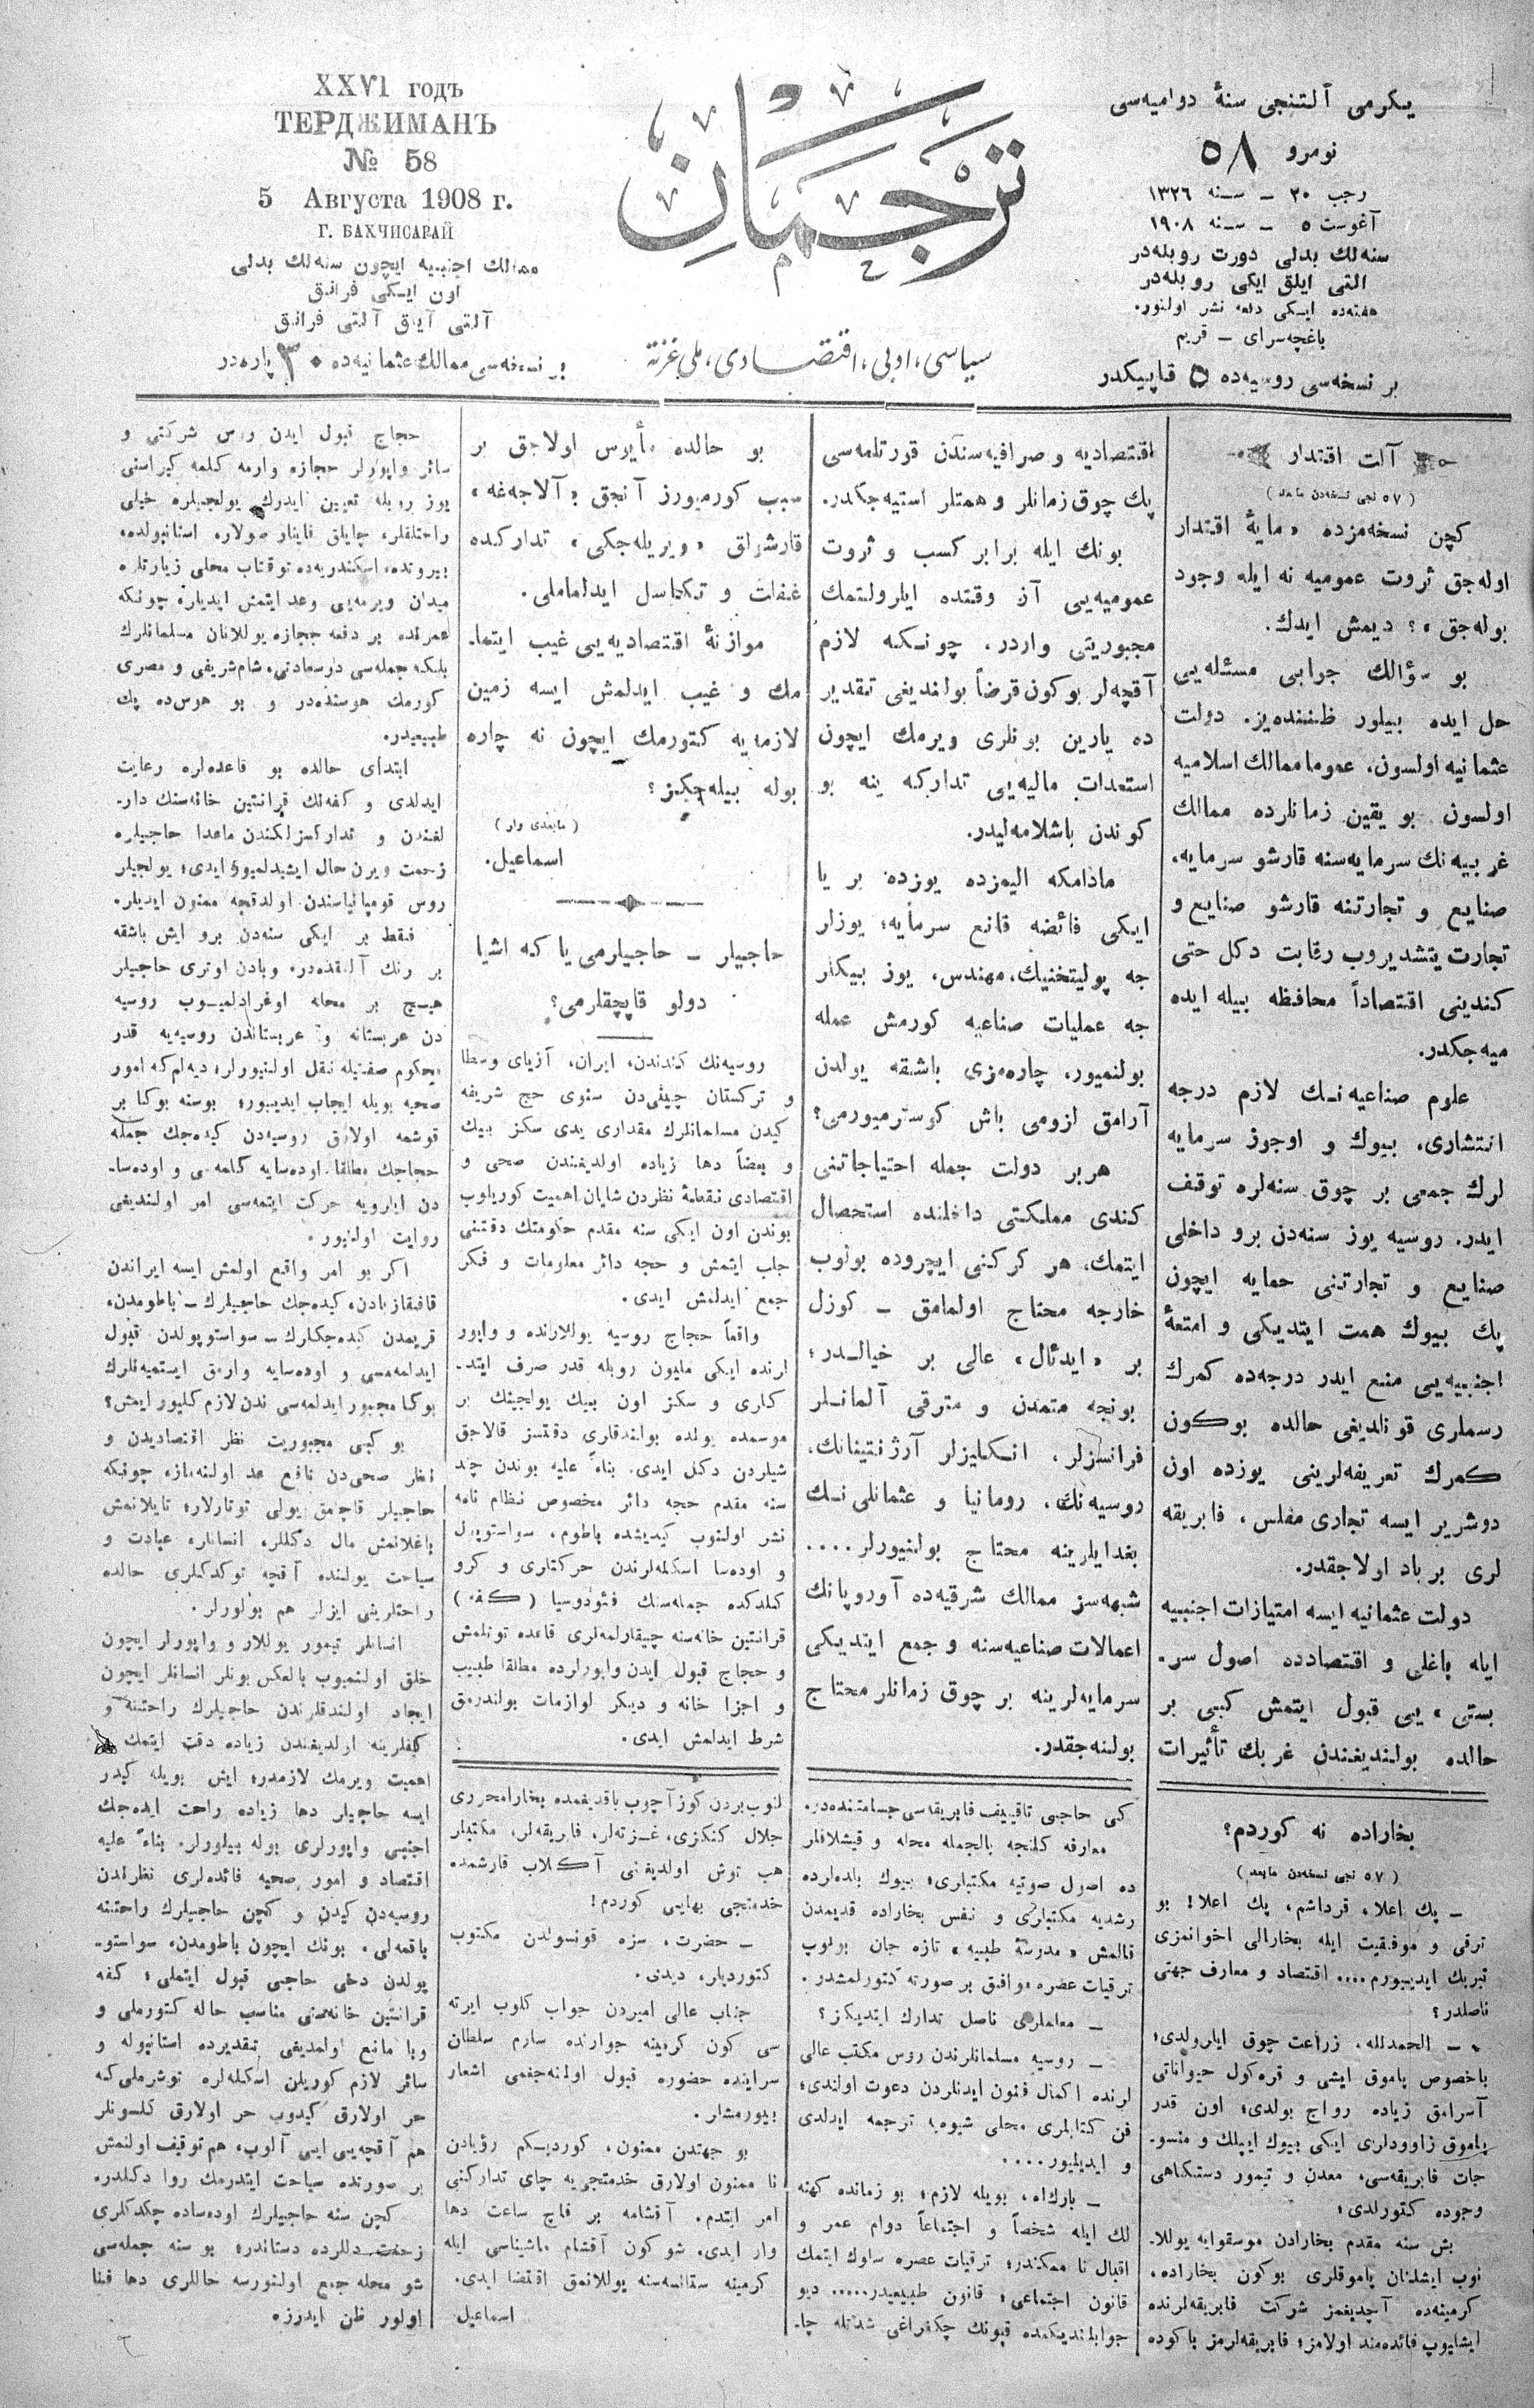 XXVI годъ
ТЕРДЖИМАНЪ
№ 58
5 Августа 1908 г.
Г. БАХЧИСАРАЙ
ممالك اجنبیه ایچون سنه‌لك بدلی
اون ایكی فرانق
آلتی آیلق آلتی فرانق
بر نسخه‌سی ممالك عثمانیه‌ده ٣٠ پاره‌در
ترجمان
سیاسی، ادبی، اقتصادی، ملی غزته
یكرمی آلتنجی سنۀ دوامیه‌سی
نومرو ٥٨
رجب ٢٠ – سنه ١٣٢٦
آغوست ٥ – سنه ١٩٠٨
سنه‌لك بدلی دورت روبله‌در
التی ایلق ایكی روبله‌در
هفته‌ده ایكی دفعه نشر اولنور.
باغچه‌سرای – قریم
بر نسخه‌سی روسیه‌ده ٥ قاپیكدر
آلت اقتدار
(٥٧ نجی نسخه‌دن مابعد)
كچن نسخه‌مزده «مایۀ اقتدار
اوله‌جق ثروت عمومیه نه ایله وجود
بوله‌جق»؟ دیمش ایدك.
بو سؤالك جوابی مسئله‌یی
حل ایده بیلور ظننده‌یز. دولت
عثمانیه اولسون، عموما ممالك اسلامیه
اولسون بو یقین زمانلرده ممالك
غربیه‌نك سرمایه‌سنه قارشو سرمایه،
صنایع و تجارتنه قارشو صنایع و
تجارت یتشدیروب رقابت دكل حتی
كندینی اقتصاداً محافظه بیله ایده
میه‌جكدر.
علوم صناعیه‌نك لازم درجه
انتشاری، بیوك و اوجوز سرمایه
لرك جمعی بر چوق سنه‌لره توقف
ایدر. روسیه یوز سنه‌دن برو داخلی
صنایع و تجارتنی حمایه ایچون
پك بیوك همت ایتدیكی و امتعۀ
اجنبیه‌یی منع ایدر درجه‌ده كمرك
رسملری قونالدیغی حالده بوكون
كمرك تعریفه‌لرینی یوزده اون
دوشریر ایسه تجاری مفلس، فابریقه
لری برباد اولاجقدر.
دولت عثمانیه ایسه امتیازات اجنبیه
ایله باغلی و اقتصادده اصول سر-
بستی» یی قبول ایتمش كبی بر
حالده بولندیغندن غربك تأثیرات
اقتصادیه و صرافیه‌سندن قورتلمه‌سی
پك چوق زمانلر و همتلر استیه‌جكدر.
بونك ایله برابر كسب و ثروت
عمومیه‌یی آز وقتده ایلرولتمك
مجبوریتی واردر. چونكه لازم
آقچه‌لر بوكون قرضاً بولندیغی تقدیر
ده یارین بونلری ویرمك ایچون
استعدات مالیه‌یی تداركه ینه بو
كوندن باشلامه‌لیدر.
مادامكه الیمزده یوزده بر یا
ایكی فائضه قانع سرمایه؛ یوزلر
جه پولیتخنیك، مهندس، یوز بیكلر
جه عملیات صناعیه كورمش عمله
بولنمیور، چاره‌مزی باشقه یولدن
آرامق لزومی باش كوسترمیورمی؟
هربر دولت جمله احتیاجاتنی
كندی مملكتی داخلنده استحصال
ایتمك، هر كركنی ایچروده بولوب
خارجه محتاج اولمامق – كوزل
بر «ایدئال» عالی بر خیالدر؛
بونجه متمدن و مترقی آلمانلر
فرانسزلر، انكلیزلر آرژنتینانك،
روسیه‌نك، رومانیا و عثمانلی‌نك
بغدایلرینه محتاج بولنیورلر....
شبهه‌سز ممالك شرقیه‌ده آوروپانك
اعمالات صناعیه‌سنه و جمع ایتدیكی
سرمایه‌لرینه بر چوق زمانلر محتاج
بولنه‌جقدر.
بو حالده مأیوس اولاجق بر
سبب كورمیورز آنجق «آلاجه‌غه»
قارشولق «ویریله‌جكی» تداركده
غفلت و تكاسل ایدلماملی.
موازنۀ اقتصادیه‌یی غیب ایتما-
مك و غیب ایدلمش ایسه زمین
لازمه‌یه كتورمك ایچون نه چاره
بوله بیله‌جكز؟
(مابعدی وار)
اسماعیل.
حاجیلر – حاجیلرمی یا كه اشیا
دولو قاپچقلرمی؟
روسیه‌نك كندندن، ایران، آزیای وسطا
و تركستان چینی‌دن سنوی حج شریفه
كیدن مسلمانلرك مقداری یدی سكز بیك
و بعضاً دها زیاده اولدیغندن صحی و
اقتصادی نقطۀ نظردن شایان اهمیت كوریلوب
بوندن اون ایكی سنه مقدم حكومتك دقتنی
جلب ایتمش و حجه دائر معلومات و فكر
جمع ایدلمش ایدی.
واقعاً حجاج روسیه یوللارنده و واپور
لرنده ایكی ملیون روبله قدر صرف ایتد-
كلری و سكز اون بیك یولجینك بر
موسمده یولده بولندقلری دقتسز قالاجق
شیلردن دكل ایدی. بناءً علیه بوندن چند
سنه مقدم حجه دائر مخصوص نظام نامه
نشر اولنوب كیدیشده باطوم، سواستوپول
و اوده‌سا اسكله‌لرندن حركتلری و كرو
كلدكده جمله‌سنك فئودوسیا (كفه)
قرانتین خانه‌سنه چیقارلمه‌لری قاعده توتلمش
و حجاج قبول ایدن واپورلرده مطلقا طبیب
و اجزا خانه و دیكر لوازمات بولندرمق
شرط ایدلمش ایدی.
حجاج قبول ایدن روس شركتی و
سائر واپورلر حجازه وارمه كلمه كیراسنی
یوز روبله تعیین ایدرك یولجیلره خیلی
راحتلقلر، چایلق قاینار صولار، استانبولده،
بیروتده، اسكندریه‌ده توقتاب محلی زیارتلره
میدان ویرمه‌یی وعد ایتمش ایدیلر؛ چونكه
عمرنده بر دفعه حجازه یوللانان مسلمانلرك
بلكه جمله‌سی درسعادتی، شام شریفی و مصری
كورمك هوسنده‌در و بو هوس‌ده پك
طبیعیدر.
ابتدای حالده بو قاعده‌لره رعایت
ایدلدی و كفه‌نك قرانتین خانه‌سنك دار-
لغندن و تداركسزلكندن ماعدا حاجیلره
زحمت ویرن حال ایشیدلمیور ایدی؛ یولجیلر
روس قومپانیاسندن اولدقجه ممنون ایدیلر.
فقط بر ایكی سنه‌دن برو ایش باشقه
بر رنك آلمقده‌در. وبادن اوتری حاجیلر
هیچ بر محله اوغرادلمیوب روسیه
دن عربستانه و عربستاندن روسیه‌یه قدر
محكوم صفتیله نقل اولنیورلر؛ دیه‌لم كه امور
صحیه بویله ایجاب ایدییور؛ بوسنه بوكا بر
قوشمه اولارق روسیه‌دن كیده‌جك جمله
حجاجك مطلقا اوده‌سایه كلمه‌سی و اوده‌سا-
دن ایلرویه حركت ایتمه‌سی امر اولندیغی
روایت اولنیور.
اكر بو امر واقع اولمش ایسه ایراندن
قافقازیادن، كیده‌جك حاجیلرك – باطومدن،
قریمدن كیده‌جكلرك – سواستوپولدن قبول
ایدلمه‌مسی و اوده‌سایه وارمق ایستمیه‌نلرك
بوكا مجبور ایدلمه‌سی ندن لازم كلیور ایمش؟
بو كبی مجبوریت نظر اقتصادیدن و
نظر صحی‌دن نافع عد اولنه‌ماز، چونكه
حاجیلر قاچمق یولی توتارلار؛ تایلانمش
باغلانمش مال دكللر، انسانلر، عبادت و
سیاحت یولنده آقچه توكدكلری حالده
راحتلرینی ایزلر هم بولورلر.
انسانلر تیمور یوللار و واپورلر ایچون
خلق اولنمیوب بالعكس بونلر انسانلر ایچون
ایجاد اولندقلرندن حاجیلرك راحتنه و
كیفلرینه اولدیغندن زیاده دقت ایتمك
اهمیت ویرمك لازمدر؛ ایش بویله كیدر
ایسه حاجیلر دها زیاده راحت ایده‌جك
اجنبی واپورلری بوله بیلورلر. بناءً علیه
اقتصاد و امور صحیه فائده‌لری نظرندن
روسیه‌دن كیدن و كچن حاجیلرك راحتنه
باقمه‌لی. بونك ایچون باطومدن، سواستو-
پولدن دخی حاجی قبول ایتملی؛ كفه
قرانتین خانه‌سنی مناسب حاله كتورملی و
وبا مانع اولمدیغی تقدیرده استانبوله و
سائر لازم كوریلن اسكله‌لره توشرملی كه
حر اولارق كیدوب حر اولارق كلسونلر
هم آقچه‌یی ایی آلوب، هم توقیف اولنمش
بر صورتده سیاحت ایتدرمك روا دكلدر.
كچن سنه حاجیلرك اوده‌ساده چكدكلری
زحمت دللرده دستاندر؛ بو سنه جمله‌سی
شو محله جمع اولنورسه حاللری دها فنا
اولور ظن ایدرز.
بخاراده نه كوردم؟
(٥٧ نجی نسخه‌دن مابعد)
– پك اعلا، قرداشم، پك اعلا! بو
ترقی و موفقیت ایله بخارالی اخوانمزی
تبریك ایدییورم.... اقتصاد و معارف جهتی
ناصلدر؟
– الحمدلله، زراعت چوق ایلرولدی؛
باخصوص پاموق ایشی و قره‌كول حیواناتی
آسرامق زیاده رواج بولدی؛ اون قدر
پاموق زاوودلری ایكی بیوك ایپلك و منسو-
جات فابریقه‌سی، معدن و تیمور دستكاهی
وجوده كتورلدی؛
بش سنه مقدم بخارادن موسقوایه یوللا-
نوب ایشلنان پاموقلری بوكون بخاراده،
كرمینه‌ده آچدیغمز شركت فابریقه‌لرنده
ایشلیوب فائده‌مند اولامز؛ فابریقه‌لرمز باكوده
كی حاجی تاقییف فابریقه‌سی جسامتنده‌در.
معارفه كلنجه بالجمله محله و قیشلاقلر
ده اصول صوتیه مكتبلری؛ بیوك بلده‌لرده
رشدیه مكتبلری و نفس بخاراده قدیمدن
قالمش «مدرسۀ طبیه» تازه جان بولوب
ترقیات عصره موافق بر صورته كتورلمشدر.
– معلملری ناصل تدارك ایتدیكز؟
– روسیه مسلمانلرندن روس مكتب عالی
لرنده اكمال فنون ایدنلردن دعوت اولندی؛
فن كتابلری محلی شیوه‌یه ترجمه ایدلدی
و ایدیلیور....
– بارك‌الله، بویله لازم؛ بو زمانده كهنه
لك ایله شخصاً و اجتماعاً دوام عمر و
اقبال نا ممكندر؛ ترقیات عصره سلوك ایتمك
قانون اجتماعی؛ قانون طبیعیدر..... دیو
جوابلندیكمده قپونك چكغراغی شدتله چا-
لنوب بردن كوز آچوب باقدیغمده بخارامحرری
جلال كنكزی، غزته‌لر، فابریقه‌لر، مكتبلر
هب توش اولدیغنی آكلاب قارشمده
خدمتجی بهایی كوردم!
– حضرت، سزه قونسولدن مكتوب
كتوردیلر، دیدی.
جناب عالی امیردن جواب كلوب ایرته
سی كون كرمینه جوارنده سارم سلطان
سراینده حضوره قبول اولنه‌جغمی اشعار
بیورمشلر.
بو جهتدن ممنون، كوردیكم رؤیادن
نا ممنون اولارق خدمتجی‌یه چای تداركنی
امر ایتدم. آقشامه بر قاچ ساعت دها
وار ایدی. شو كون آقشام ماشیناسی ایله
كرمینه ستانسه‌سنه یوللانمق اقتضا ایدی.
اسماعیل